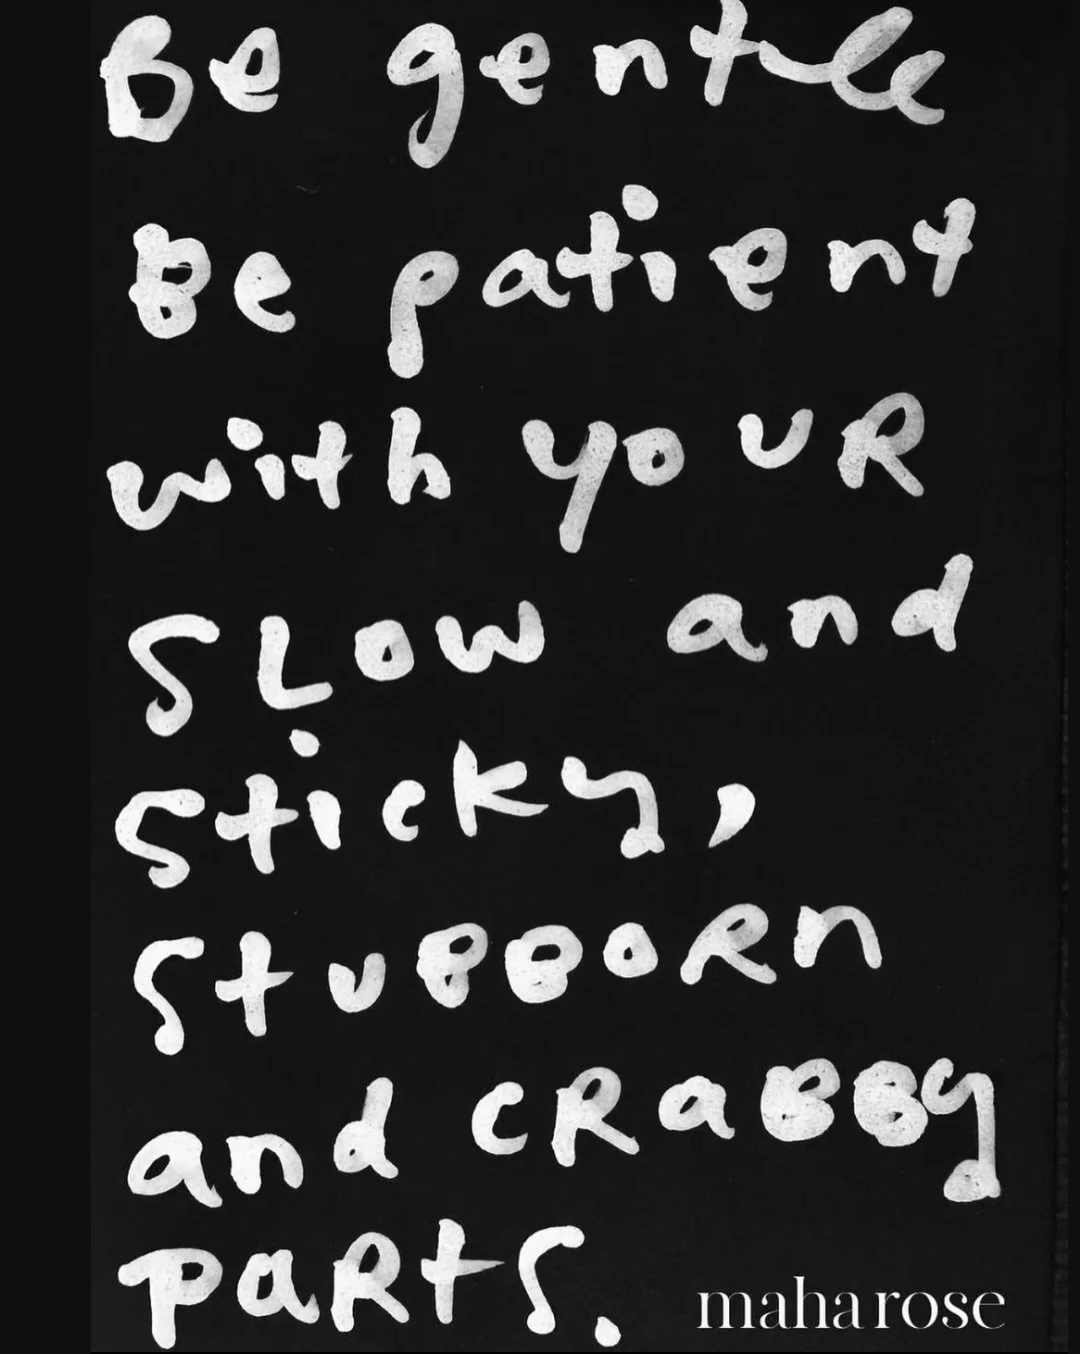 Be gentle
Be patient
with youR
SLow and
Sticky,
StuBBoRn
and cRaBBy
paRts.
maha rose